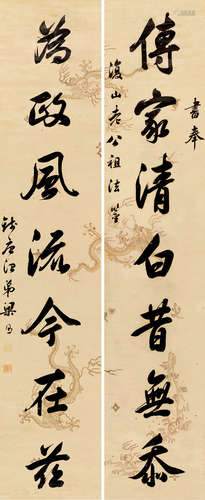 書奉
傳家清白昔無忝
山老公祖法鑒
為政風流今在茲
錢唐治弟梁